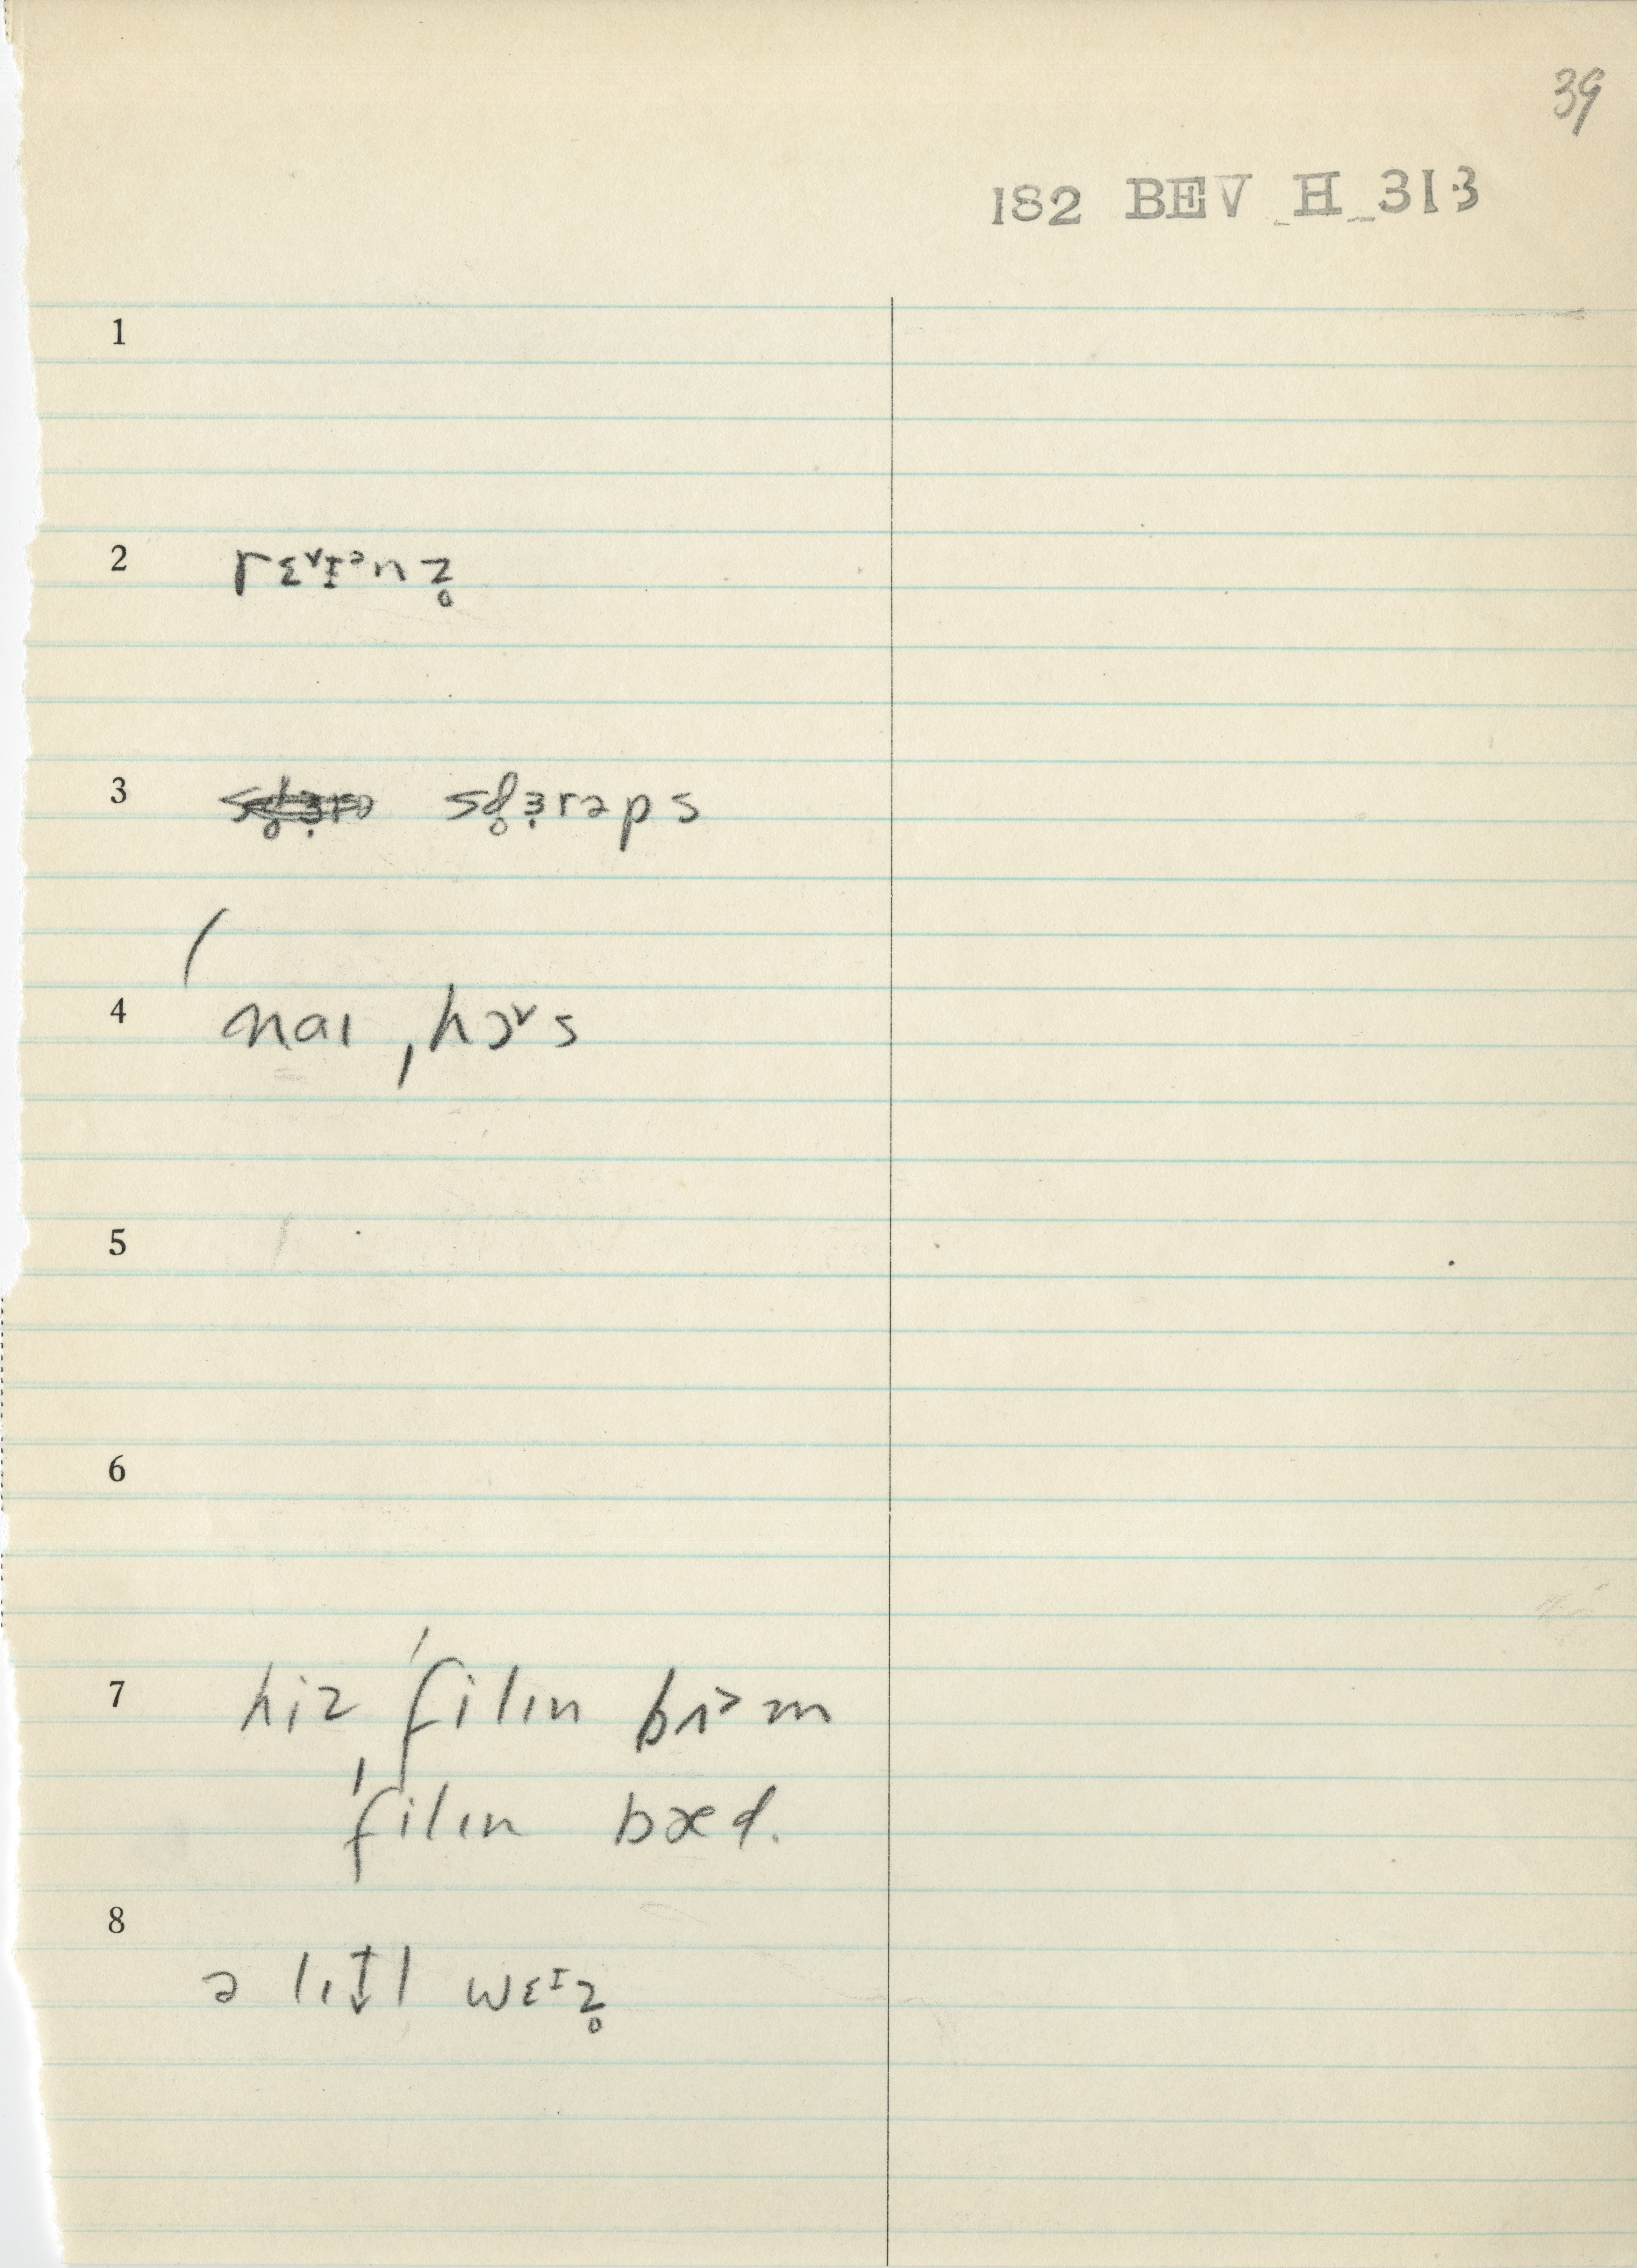 39
182 BEV H 313
1
2 rɛᵛɪᵊnz̥
3 sd̥ɜ̣rəps
4 naɪ ˌhɔᵛs
5
6
7 hiz ˈfilɪn bɪ˃m
ˈfilɪn bæd.
8 ə lɪt̬l wɛᶦz̥